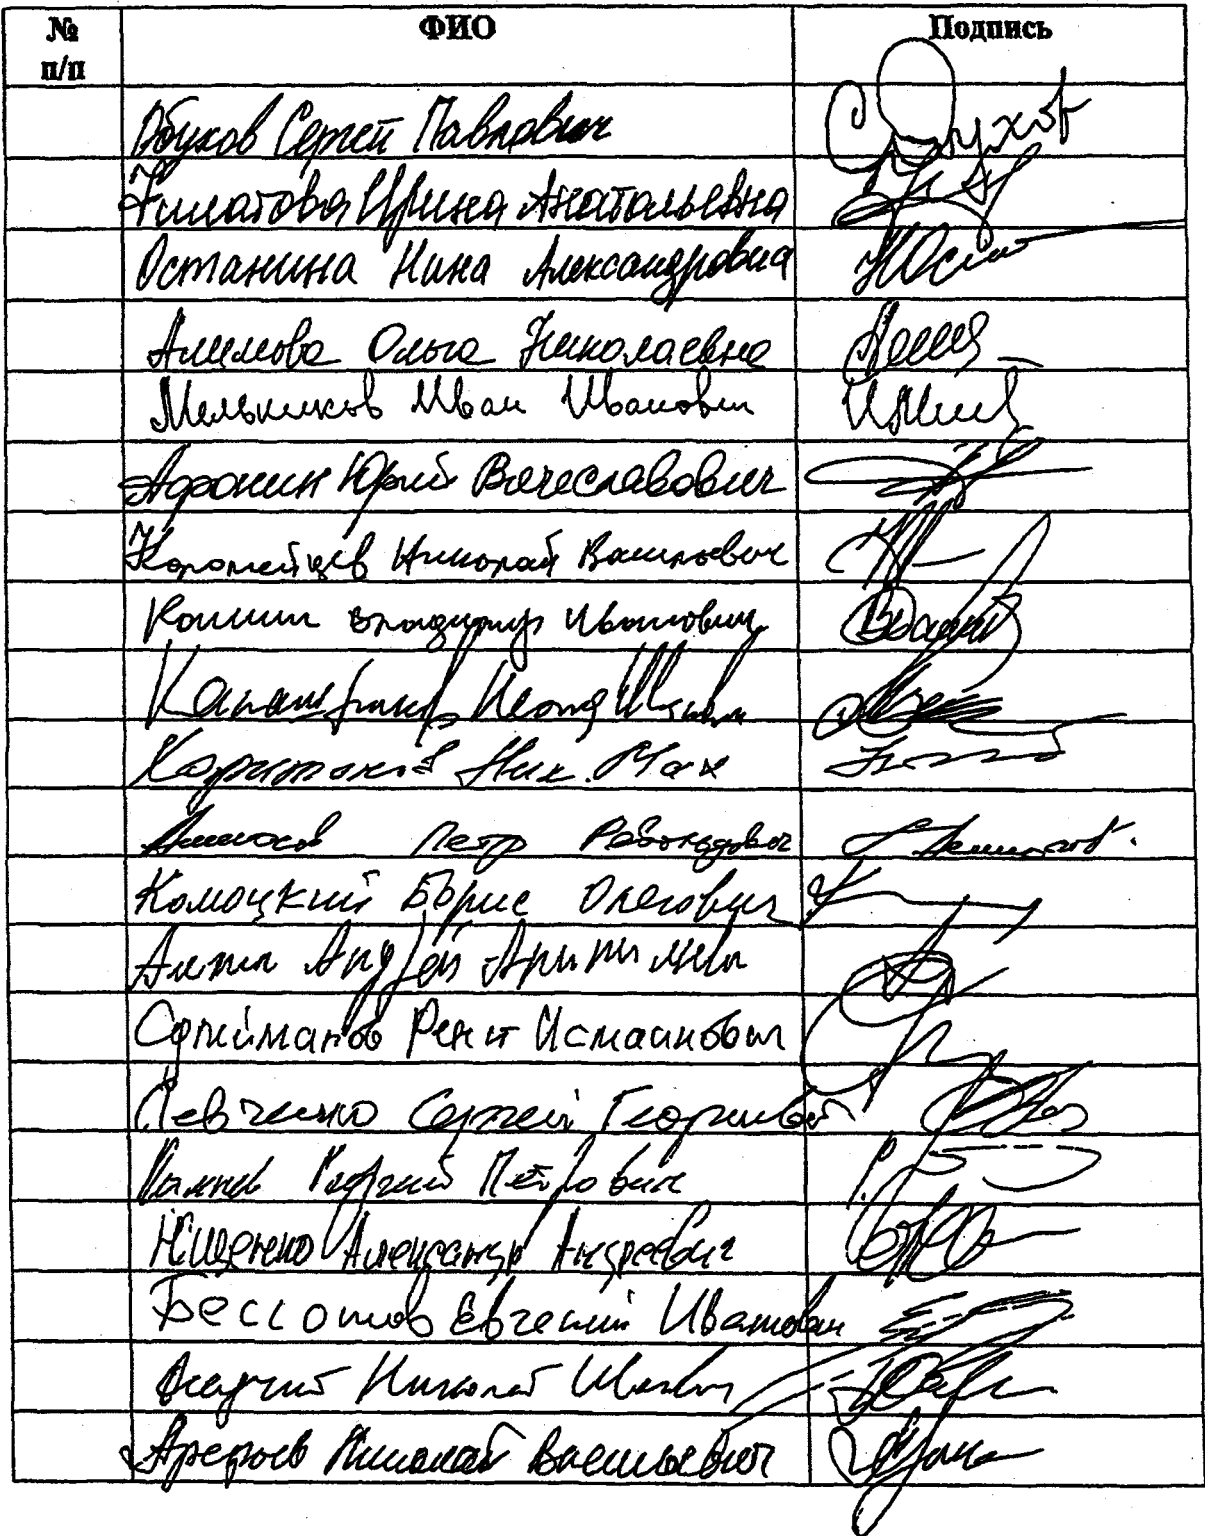 № п/п ФИО Подпись
Обухов Сергей Павлович Обухов
Филатова Ирина Анатольевна
Останина Нина Александровна
Алимова Ольга Николаевна
Мельников Иван Иванович
Афонин Юрий Вячеславович
Коломейцев Николай Васильевич
Кашин Владимир Иванович
Калашников Леонид Иванович
Харитонов Ник. Мих
Аммосов Петр Револьдович
Комоцкий Борис Олегович
Андрей
Сулейманов Ренат Исмаилович
Левченко Сергей Георгиевич
Камнев Георгий Петрович
Ющенко Александр Андреевич
Бессонов Евгений Иванович
Николай Иванович
Арефьев Николай Васильевич